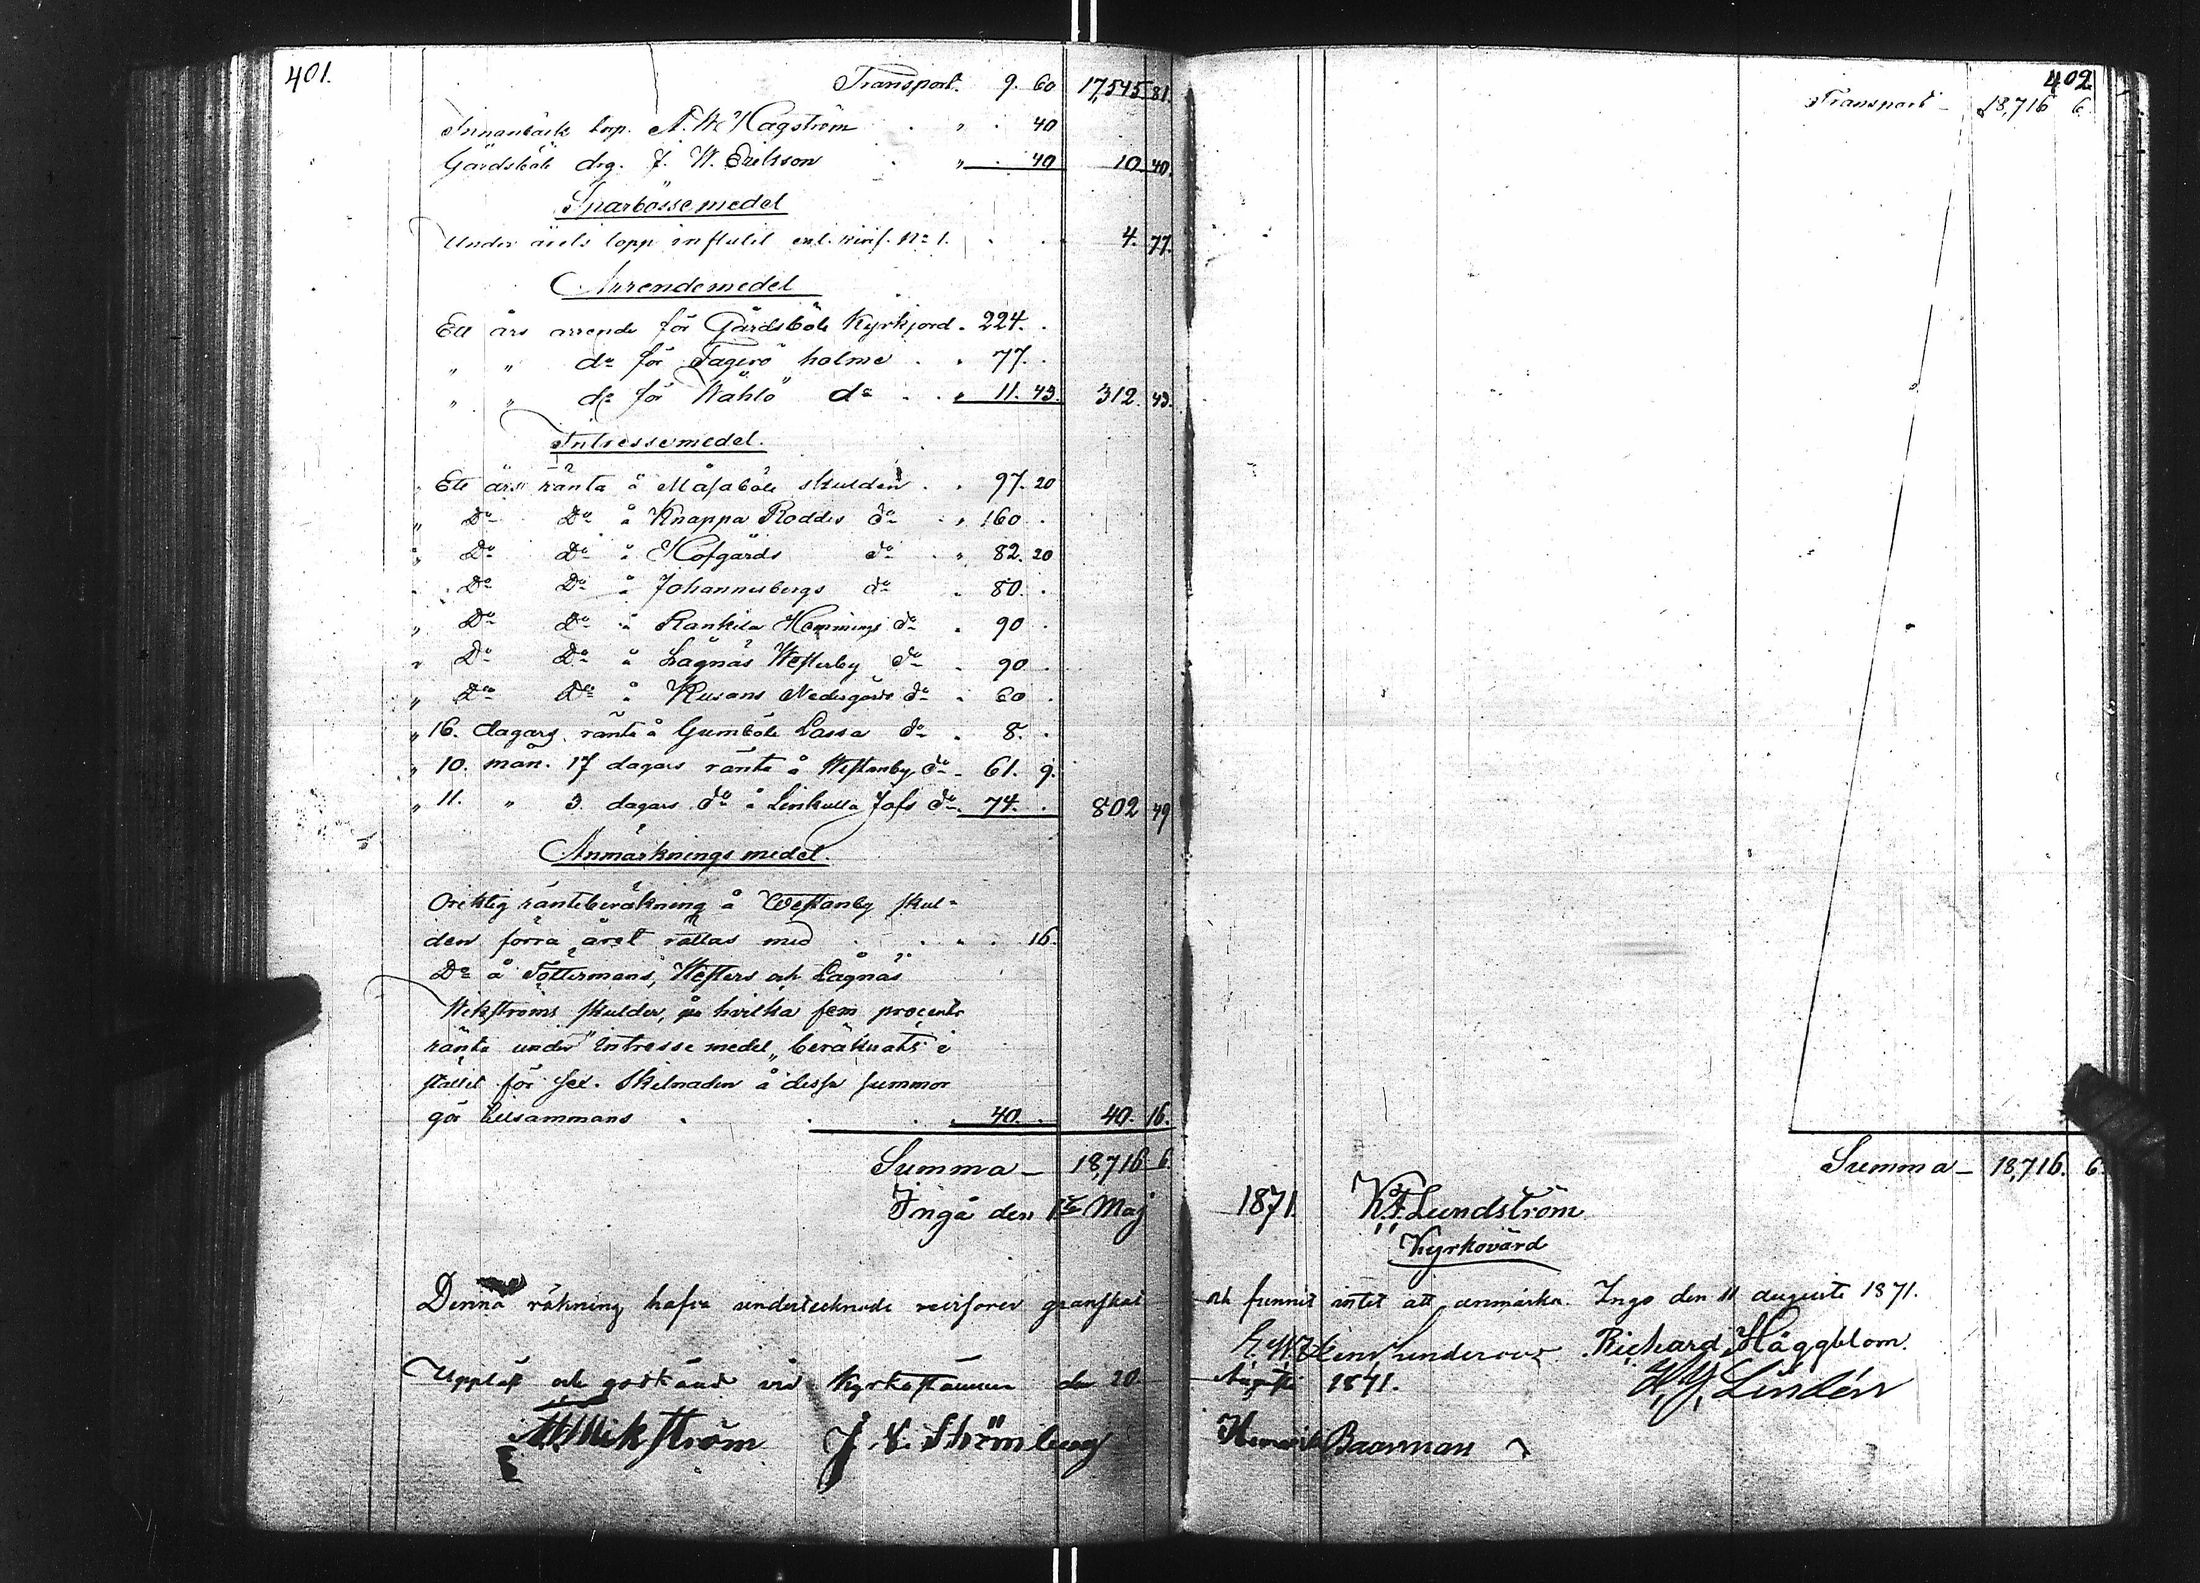 401.
Transport. 9. 60 17,545 81.
Innanbäck torp. A. W. Hagström . " . 40
Gårdsböle drg. F. W. Erikson . " . 40 10 40.
Sparbössemedel
Under årets lopp influtit enl. Nº 1. . . 4. 77.
Arrendemedel
Ett års arrende för Gårdsböle Kyrkjord . 224. .
" " dº för Fagerö holme . . 77. .
" " dº för Wåhlö dº . . " 11. 43. 312. 43.
Intressemedel.
" Ett års ränta å Måsaböle skulden . . 97. 20
" Dº Dº å Knappa Roddis dº . " 160 .
" Dº Dº å Hofgårds dº . " 82. 20
" Dº Dº å Johannesbergs dº . 80. .
" Dº Dº å Rankila Hemmings dº . 90 .
" Dº Dº å Lågnäs Westerby dº . 90 .
" Dº Dº å Kusans Nedergårds dº . 60 .
" 16. dagars ränta å Gumböle Lassa dº . 8. .
" 10. mån. 17 dagars ränta å Westanby dº . 61. 9.
" 11. " 3. dagars dº å Linkulla Jofs dº . 74. . 802 49
Anmärkningsmedel.
Oriktig ränteberäkning å Westanby skul-
den förra året rättas med . . . . 16.
Dº å Töttermans, Westers och Lågnäs
Wikströms skulder, på hvilka fem procents
ränta under "Intressemedel" beräknats i
stället för sex. Skilnaden å dessa summor
gör tillsammans . . . 40. . 40. 16.
Summa — 18,716 6.
Ingå den 1ste Maj 1871. K. F. Lundström
Kyrkovärd
Denna räkning hafva undertecknade revisorer granskat och funnit intet att anmärka. Ingo den 11 augusti 1871.
Richard Häggblom.
Uppläst och godkänd vid Kyrkostämma den 20 Augusti 1871. Lindén
Wikström J. E. Strömberg Henrik Baarman
402
Transport — 18,716 6.
Summa — 18,716. 6.